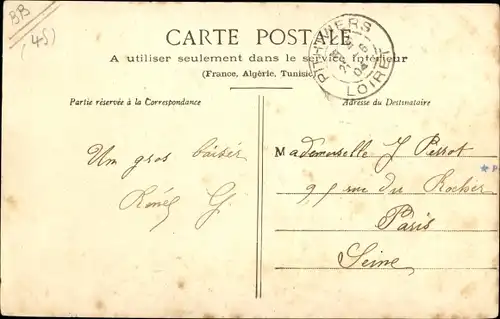 BB
(45)
CARTE POSTALE
A utiliser seulement dans le service intérieur
(France, Algérie, Tunisie)
PITHIVIERS
LOIRET
Partie réservée à la Correspondance
Adresse du Destinataire
Un gros baiser
René G.
Mademoiselle J Perrot
95 rue du Rocher
Paris
Seine